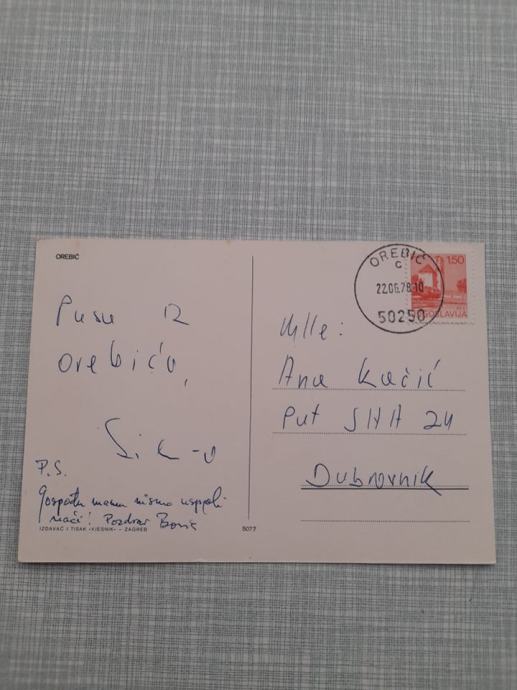 OREBIĆ
OREBIĆ
C
22.06.78-10
50250
1,50
JUGOSLAVIJA
Pusu iz
Orebića,
P.S.
Gospođu mamu nismo uspjeli
naći! Pozdrav Boris
Mlle:
Ana Kačić
Put JNA 24
Dubrovnik
IZDAVAČ I TISAK «VJESNIK» - ZAGREB
5077